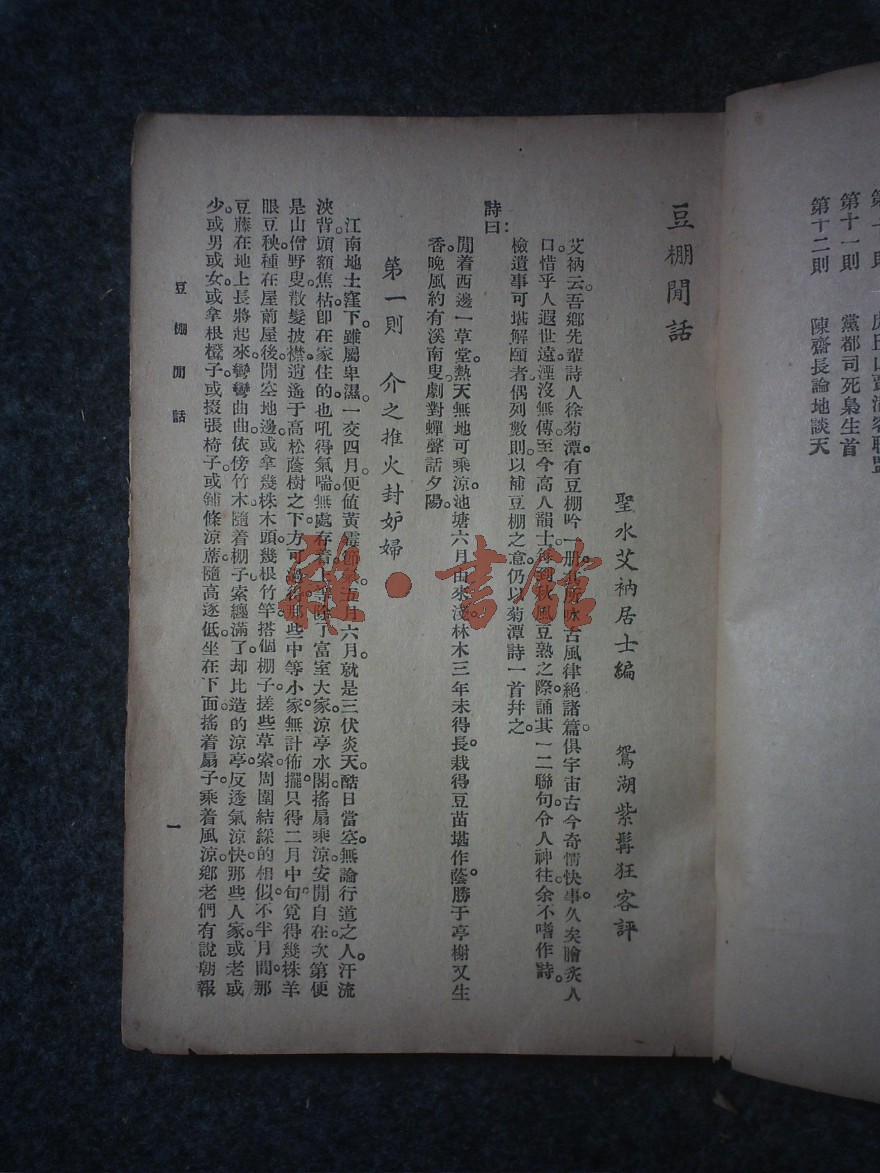 第十一則 黨都司死梟生首
第十二則 陳齋長論地談天
豆棚閒話
聖水艾衲居士編 鴛湖紫髯狂客評
艾衲云。吾鄉先輩詩人徐菊潭有豆棚吟一册。其所咏古風律絕諸篇。俱宇宙古今奇情快事。久矣膾炙人
口。惜乎人遐世遠。湮沒無傳。至今高人韻士。每到秋風豆熟之際。誦其一二聯句。令人神往。余不嗜作詩。
檢遺事可堪解頤者。偶列數則。以補豆棚之意。仍以菊潭詩一首弁之。
詩曰：
閒着西邊一草堂。熱天無地可乘涼。池塘六月由來淺。林木三年未得長。栽得豆苗堪作蔭。勝于亭榭又生
香。晚風約有溪南叟。劇對蟬聲話夕陽。
第一則 介之推火封妒婦
江南地土窪下。雖屬卑濕。一交四月。便值黃霉 五月六月。就是三伏炎天。酷日當空。無論行道之人。汗流
浹背。頭額焦枯。卽在家住的也吼得氣喘。無處存着。上 除了富室大家。涼亭水閣。搖扇乘涼。安閒自在。次第便
是山僧野叟。散髮披襟。逍遙于高松蔭樹之下。方可 那些中等小家無計佈擺。只得二月中旬覓得幾株羊
眼豆秧。種在屋前屋後閒空地邊。或拿幾株木頭。幾根竹竿。搭個棚子。搓些草索。周圍結綵的相似。不半月間。那
豆藤在地上長將起來。彎彎曲曲。依傍竹木。隨着棚子索纏滿了。却比造的涼亭反透氣涼快。那些人家或老或
少。或男或女。或拿根櫈子。或掇張椅子。或鋪條涼蓆。隨高逐低。坐在下面。搖着扇子。乘着風涼。鄉老們有說朝報
豆棚閒話
一
雅·書館